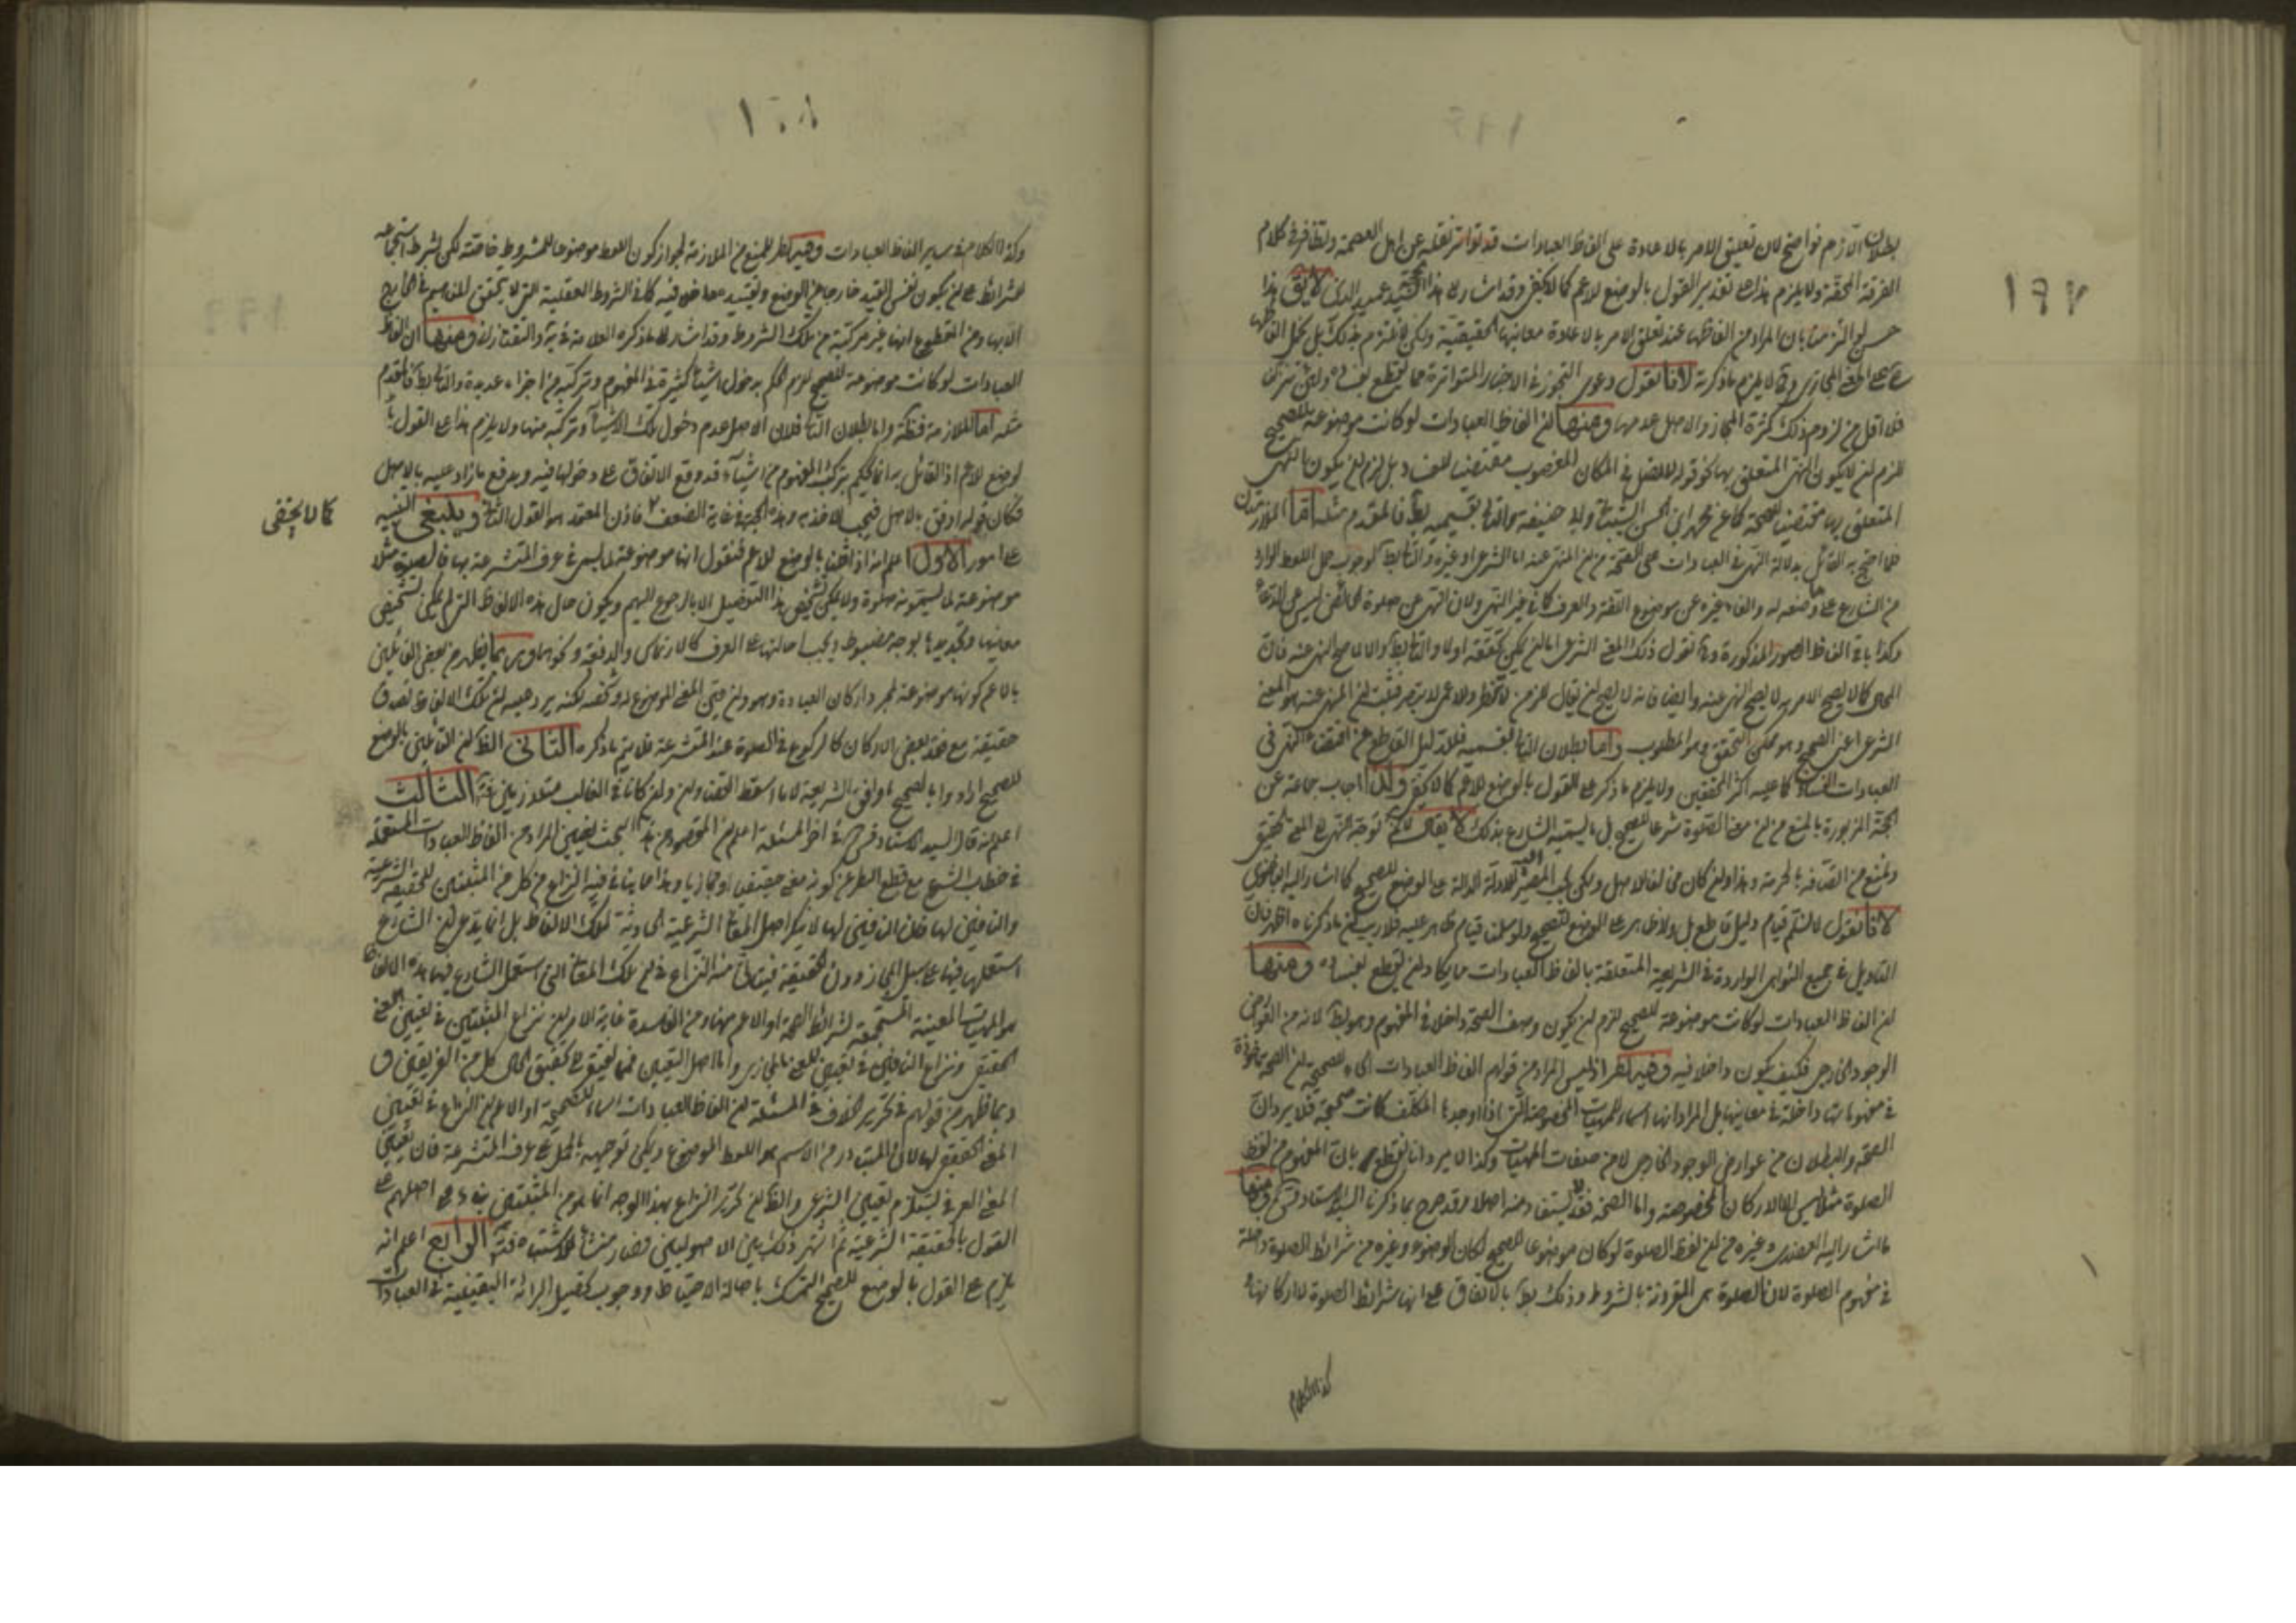 ١٩٢
بطلان اللازم فواضح لان تعليق الامر بالاعادة على الفاظ العبادات قد تواتر نقله عن اهل العصمة وتظافر في كلام
الفرقة المحقة ولا يلزم هذا على تقدير القول بالوضع للاعم كما لا يخفى وقد اشار الى هذا الحجة السيد عميد الدين لا يق هذا
حسن لو التزمنا بان المراد من الفاظها عند تعلق الامر بالاعادة معانيها الحقيقية ولكن لا نلتزم بذلك بل نحمل الفاظها
على المعنى المجازي وح لا يلزم ما ذكرت لانا نقول دعوى التجوز في الاخبار المتواترة مما يقطع بفساده ولئن تنزلنا
فلا اقل من لزوم ذلك كثرة المجاز والاصل عدمها ومنها ان الفاظ العبادات لو كانت موضوعة للصحيح
للزم ان لا يكون النهي المتعلق بها كقوله لا تصل في المكان المغصوب مقتضيا للفساد بل لزم ان يكون النهي
المتعلق بها مقتضيا للصحة كما عن محمد ابن الحسن الشيباني وابي حنيفة والتالي بقسميه بط فالمقدم مثله اما الملازمتان
فلما احتج به القائل بدلالة النهي في العبادات على الصحة من ان المنهى عنه اما الشرعي او غيره والثاني بط لوجوب حمل اللفظ الوارد
من الشارع على ما وضعه له والغاء غيره عن موضوع اللغة والعرف كما في غير النهي ولان النهي عن صلوة الحائض ليس عن الدعاء
وكذا باقي الفاظ الصور المذكورة وح نقول ذلك المعنى الشرعي اما ان يمكن تحققه اولا والثاني بط والا لامتنع النهي عنه فان
المحال كما لا يصح الامر به لا يصح النهي عنه وايضا فانه لا يصح ان يقال للزمن لا تخط وللاعمى لا تبصر فثبت ان المنهى عنه هو المعنى
الشرعي اعني الصحيح وهو ممكن التحقق وهو المطلوب واما بطلان التالي بقسميه فللدليل القاطع من اقتضاء النهي في
العبادات الفساد كما عليه اكثر المحققين ولا يلزم ما ذكر على القول بالوضع للاعم كما لا يخفى وقد اجاب جماعة عن
الحجة المزبورة بالمنع من ان معنى الصلوة شرعا الصحيح بل ما يسميه الشارع بذلك لا يقال لا نم توجه النهي الى المعنى الحقيقي
ونمنع من اتصافه بالحرمة وهذا وان كان خلاف الاصل ولكن يجب المصير اليه للادلة الدالة على الوضع للصحيح كما اشار اليه البيضاوي
لانا نقول لا نسلم قيام دليل قاطع بل ولا ظاهر على الوضع للصحيح ولو سلمنا قيام ظاهر عليه فلا ريب ان ما ذكرناه اظهر فان
التاويل في جميع النواهي الواردة في الشريعة المتعلقة بالفاظ العبادات مما يكاد ان يقطع بفساده ومنها
ان الفاظ العبادات لو كانت موضوعة للصحيح للزم ان يكون وصف الصحة داخلا في المفهوم وهو بط لانه من العوارض
الوجود الخارجي فكيف يكون داخلا فيه وفيه نظر اذ ليس المراد من قولهم الفاظ العبادات اسماء للصحيحة ان الصحة ماخوذة
في مفهوماتها داخلة في معانيها بل المراد انها اسماء للمهيات المخصوصة التي اذا اوجدها المكلف كانت صحيحة فلا يرد ان
الصحة والبطلان من عوارض الوجود الخارجي لا من صفات المهيات وكذا لا يرد انا نقطع بان المفهوم من لفظ
الصلوة مثلا ليس الا الاركان المخصوصة واما الصحة فلا يستفاد منه اصلا وقد صرح بما ذكرنا السيد الاستاد قدس سره ومنها
ما اشار اليه العضدي وغيره من ان لفظ الصلوة لو كان موضوعا للصحيح لكان الوضوء وغيره من شرائط الصلوة داخلة
في مفهوم الصلوة لان الصلوة هي المقرونة بالشروط وذلك بط بالاتفاق على انها شرائط الصلوة لا اركانها
وكذا الكلام
١٠٨
وكذا الكلام في ساير الفاظ العبادات وفيه نظر للمنع من الملازمة لجواز كون اللفظ موضوعا للمشروط خاصة لكن بشرط استجماعه
للشرائط على ان يكون نفس القيد خارجا عن الوضع والتقييد داخل فيه كما في الشروط العقلية التي لا يتحقق المفاهيم في الخارج
الا بها ومن المقطوع انها غير مركبة من تلك الشروط وقد اشار الى ما ذكره العلامة في ية والتفتازاني ومنها ان الفاظ
العبادات لو كانت موضوعة للصحيح لزم الحكم بدخول اشياء كثيرة في المفهوم وتركبه من اجزاء عديدة والتالي بط فالمقدم
مثله اما الملازمة فظاهرة واما بطلان التالي فلان الاصل عدم دخول تلك الاشياء وتركبه منها ولا يلزم هذا على القول
بالوضع للاعم اذ القائل به انما يحكم بتركب المفهوم من اشياء قد وقع الاتفاق على دخولها فيه ويدفع ما زاد عليه بالاصل
فكان قوله اوفق بالاصل فيجب الاخذ به وهذه الحجة في غاية الضعف فاذن المعتمد هو القول الثاني وينبغي التنبيه
كما لا يخفى
على امور الاول اعلم انه اذا قلنا بالوضع للاعم فنقول انها موضوعة لما ليس في عرف المتشرعة بها فالصلوة مثلا
موضوعة لما يسمونه صلوة ولا يمكن تشخيص هذا التفصيل الا بالرجوع اليهم ويكون حال هذه الالفاظ التي لم يمكن تشخيص
معانيها وتحديدها بوجه مضبوط ويجب احالتها على العرف كالارتماس والدفعة ونحوهما وربما يظهر من بعض القائلين
بالاعم كونها موضوعة لمجرد اركان العبادة وهو وان بين المعنى الموضوع له وكشفه لكنه يرد عليه ان تلك الالفاظ تصدق
حقيقة مع فقد بعض الاركان كالركوع في الصلوة عند المتشرعة فلا يتم ما ذكره الثاني الظ ان القائلين بالوضع
للصحيح ارادوا بالصحيح ما وافق الشريعة لا ما اسقط القضاء وان كانا في الغالب متلازمين الثالث
اعلم انه قال السيد الاستاد قدس سره في اخر المسئلة اعلم ان المقصود من هذا البحث تعيين المراد من الفاظ العبادات المستعملة
في خطاب الشرع مع قطع النظر عن كونه معنى حقيقيا او مجازيا وهذا مما يتاتى فيه النزاع من كل من المثبتين للحقيقة الشرعية
والنافين لها فان النافين لها لا ينكر اصل المعاني الشرعية الحادثة لتلك الالفاظ بل انما يدعى ان الشارع
استعملها فيها على سبيل المجاز دون الحقيقة فيتاتى منه النزاع في ان تلك المعاني التي استعمل الشارع فيها هذه الالفاظ
هو المهيات المعينة المستجمعة لشرائط الصحة او الاعم منها ومن الفاسدة غاية الامر ان نزاع المثبتين في تعيين المعنى
الحقيقي ونزاع النافين في تعيين المعنى المجازي واما اصل التعيين فمما يفتقر الى تحقيق الحال كل من الفريقين
وبما ظهر من قولهم في تحرير الخلاف في المسئلة ان الفاظ العبادات اسماء للصحيحة او الاعم ان النزاع في تعيين
المعنى الحقيقي لها لان المتبادر من الاسم هو اللفظ الموضوع ويمكن توجيهه بالحمل على عرف المتشرعة فان تعيين
المعنى العرفي يستلزم تعيين الشرعي والظ ان تحرير النزاع بهذا الوجه انما هو من المثبتين بناء على اصلهم على
القول بالحقيقة الشرعية ثم اشتهر ذلك بين الاصوليين فصار منشأ للاشتباه الرابع اعلم انه
يلزم على القول بالوضع للصحيح التمسك باصالة الاحتياط ووجوب تحصيل البرائة اليقينية في العبادات